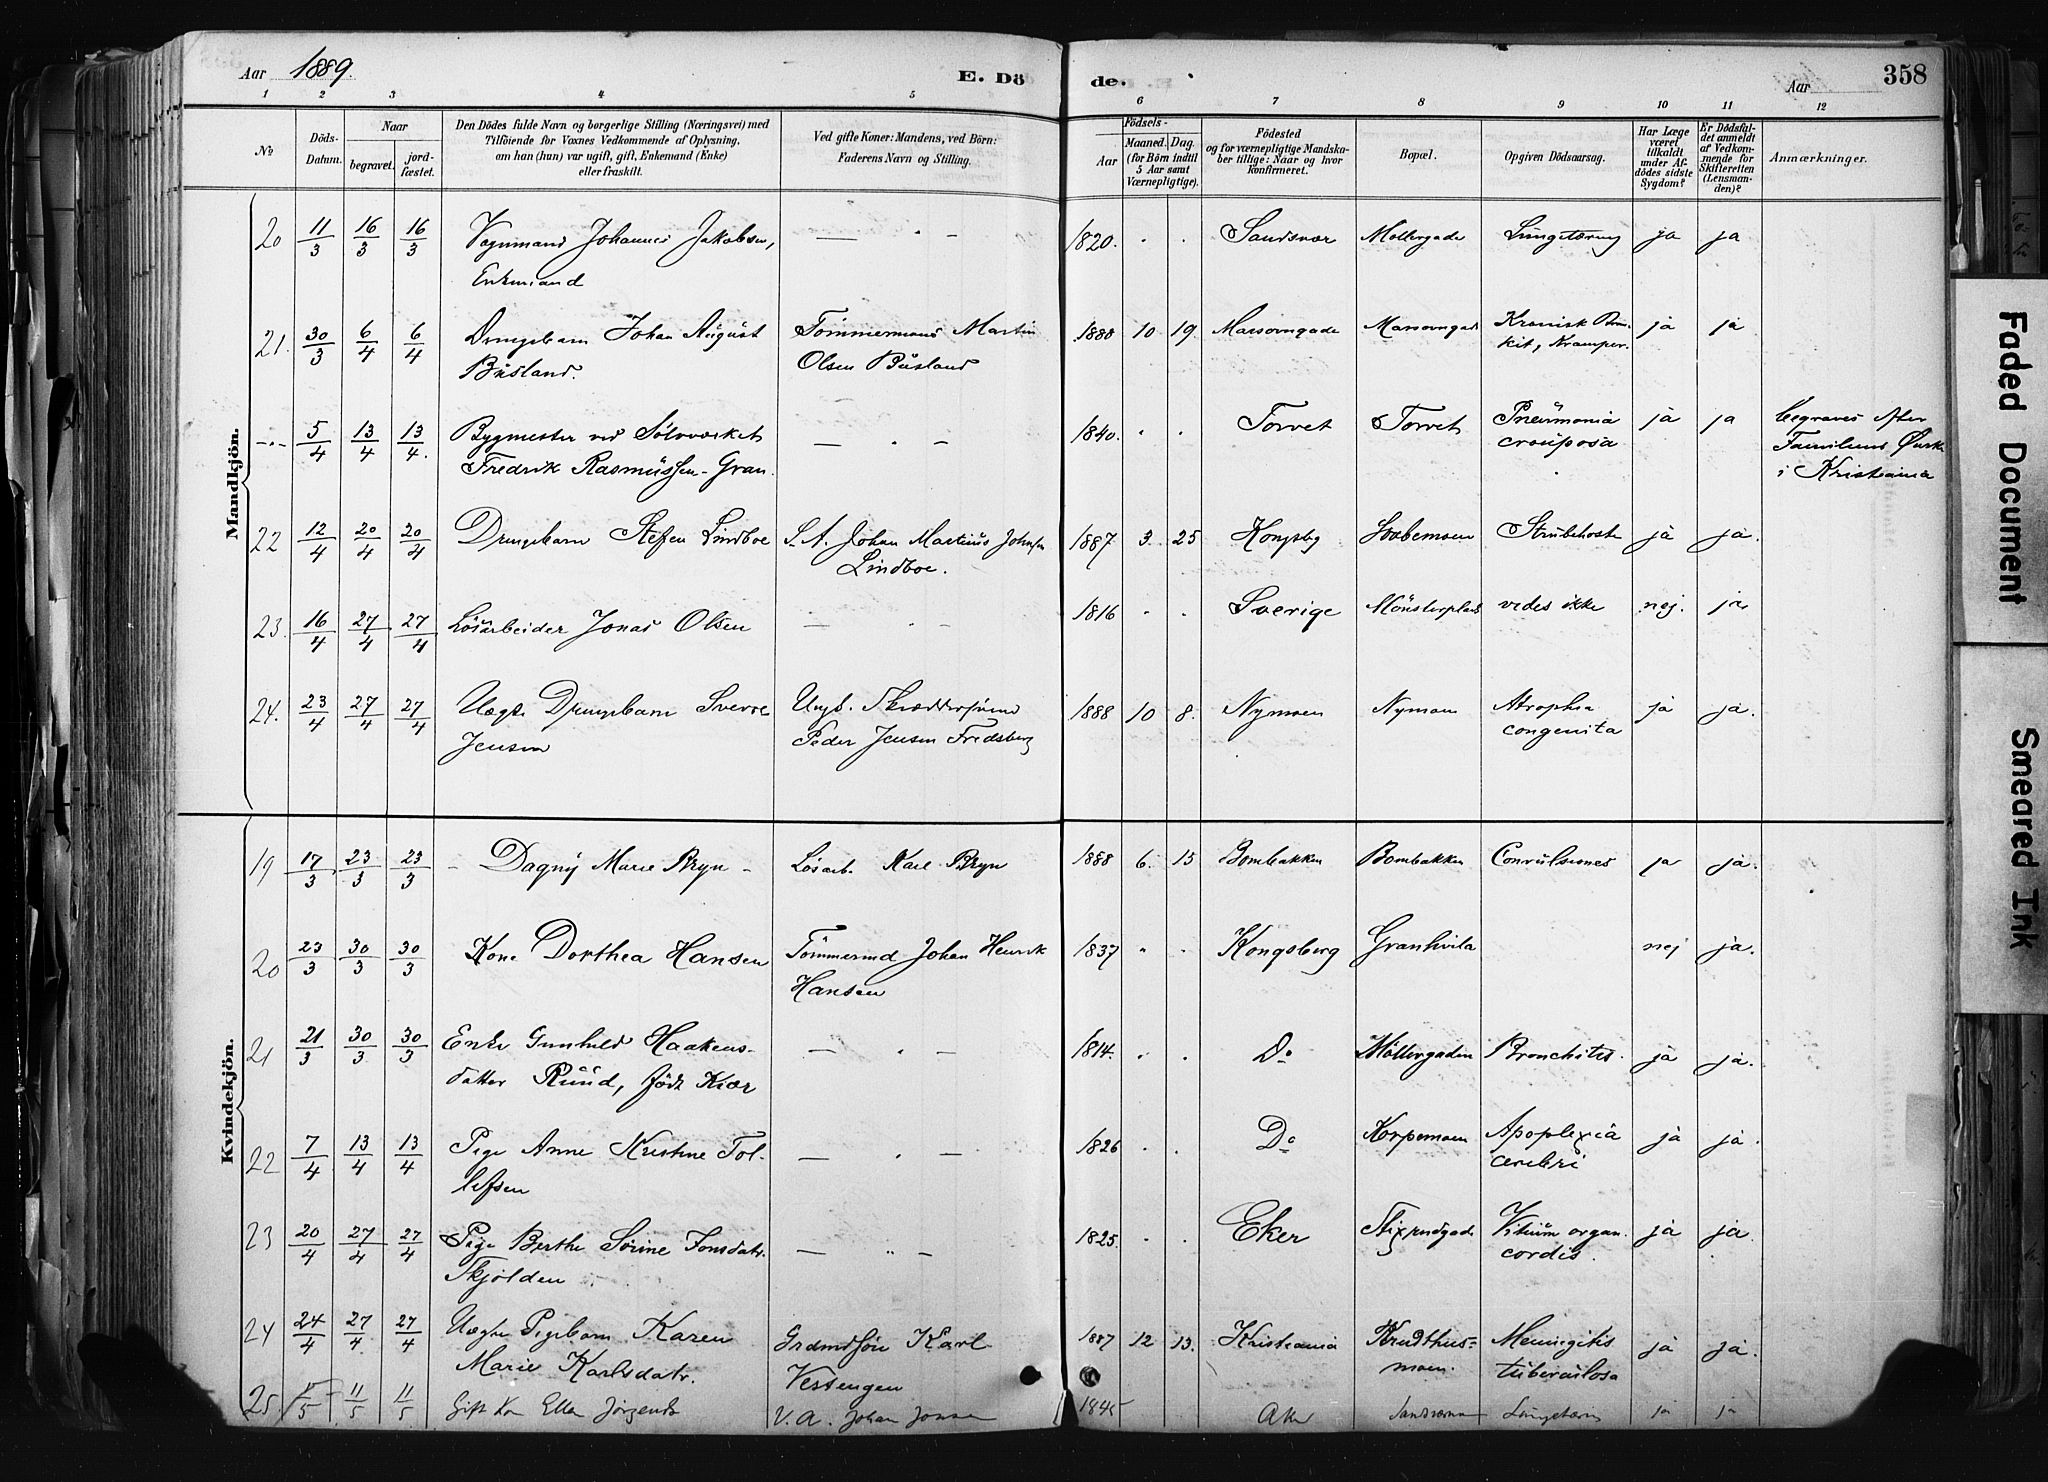 Aar 1889.
E. Dö
de.
Aar
358
1 2 3 4 5 6 7 8 9 10 11 12
№
Döds-Datum.
Naar
begravet.
jordfæstet.
Den Dödes fulde Navn og borgerlige Stilling (Næringsvei) med
Tilföiende for Voxnes Vedkommende af Oplysning,
om han (hun) var ugift, gift, Enkemand (Enke)
eller fraskilt.
Ved gifte Koner: Mandens, ved Börn:
Faderens Navn og Stilling.
Födsels-
Aar
Maaned. Dag.
(for Börn indtil
5 Aar samt
Værnepligtige).
Födested
og for værnepligtige Mandskaber tillige: Naar og hvor
konfirmeret.
Bopæl.
Opgiven Dödsaarsag.
Har Læge
været
tilkaldt
under Afdödes sidste
Sygdom?
Er Dödsfaldet anmeldt
af Vedkommende for
Skifteretten
(Lensmanden)?
Anmærkninger.
Mandkjön.
20 11/3 16/3 16/3 Vognmand Johannes Jakobsen, — " — 1820. " " Sandsvær Möllergade Lungetæring ja ja
Enkemand
21. 30/3 6/4 6/4 Drengebarn Johan August Tömmermand Martin 1888 10 19. ja ja
Büsland. Olsen Büsland
— " — 5/4 13/4 13/4. Bygmester ved Sölvværket — " — 1840. " " Torvet Torvet Pneumonia ja ja begraves efter
Fredrik Rasmüssen-Gran. crouposa Familiens Önske
i Kristiania
22 12/4 20/4 20/4 Drengebarn Steffen Lindboe S. A. Johan Martinus Johnsen 1887 3. 25 Kongsbg Strubehoste ja ja.
Lindboe.
23. 16/4 27/4 27/4 Lösarbeider Jonas Olsen — " — 1816 " " Sverige vides ikke nej. ja
24. 23/4 27/4 27/4 Uægte Drengebarn Sverre Ungk. 1888 10 8. Nymoen Nymoen Atrophia ja ja.
Jensen Peder Jensen Fredsberg congenita
Kvindekjön.
19 17/3 23/3 23/3 - Dagny Marie Bryn - Lösarb. Karl Bryn 1888 6. 15 Bombakken Bombakken Convulsiones ja ja.
20 23/3 30/3 30/3 Kone Dorthea Hansen Tömmermd Johan Henrik 1837 " " Kongsberg Granhvila nej ja.
Hansen
21 21/3 30/3 30/3 Enke Gunhild Haakens- — " — 1814. " " Do Möllergaden Bronchitis. ja ja.
datter Ruud, född Kiær
22 7/4 13/4 13/4 Pige Anne Kristine Tol- — " — 1826 " " Do Korpemoen Apoplexia ja ja.
lefsen cerebri
23 20/4 27/4 27/4 Pige Berthe Sörine Tonsdatr. — " — 1825. " " Eker Vitium organ. ja ja.
Skjölden cordis.
24 24/4 27/4 27/4 Uægte Pigebarn Karen Karl 1887 12 13. Kristiania Krudthus- Meningitis ja ja.
Marie Karlsdatr. Vestengen moen. tüberculosa
25. 11/5 11/5 Gift Kon Ellen Jörgensd. V. A. Johan 1845 ja ja
Faded Document
Smeared Ink